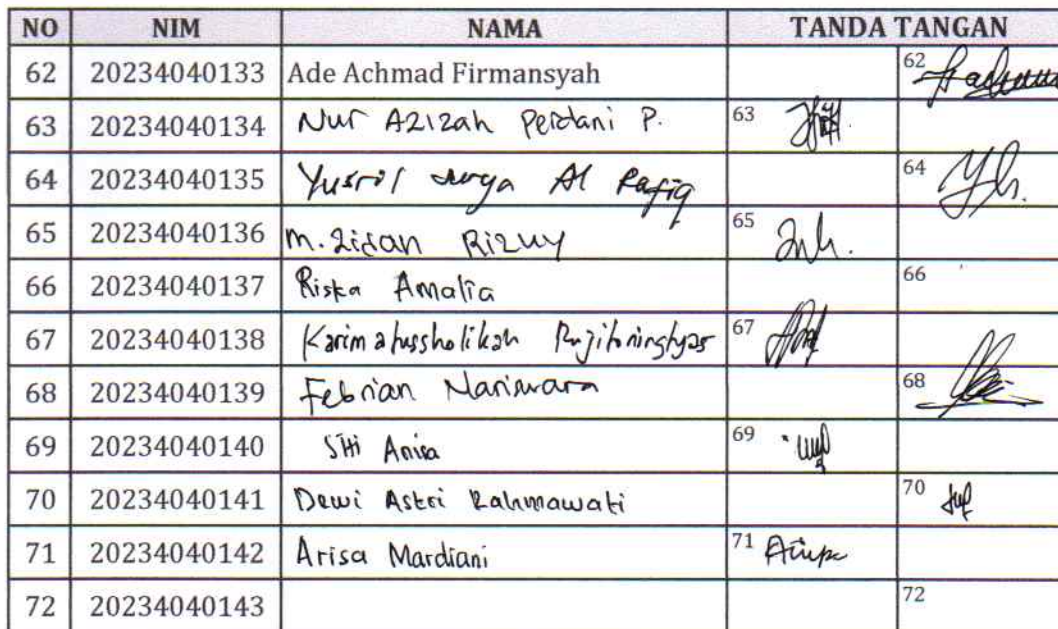 NO NIM NAMA TANDA TANGAN
62 20234040133 Ade Achmad Firmansyah 62
63 20234040134 Nur Azizah Perdani P. 63
64 20234040135 Yusril Al Rafiq 64
65 20234040136 M. Zidan Rizuy 65
66 20234040137 Riska Amalia 66
67 20234040138 Karimatussholikah 67
68 20234040139 Febrian Nariswara 68
69 20234040140 Siti Anisa 69
70 20234040141 Dewi Astri Rahmawati 70
71 20234040142 Arisa Mardiani 71
72 20234040143 72